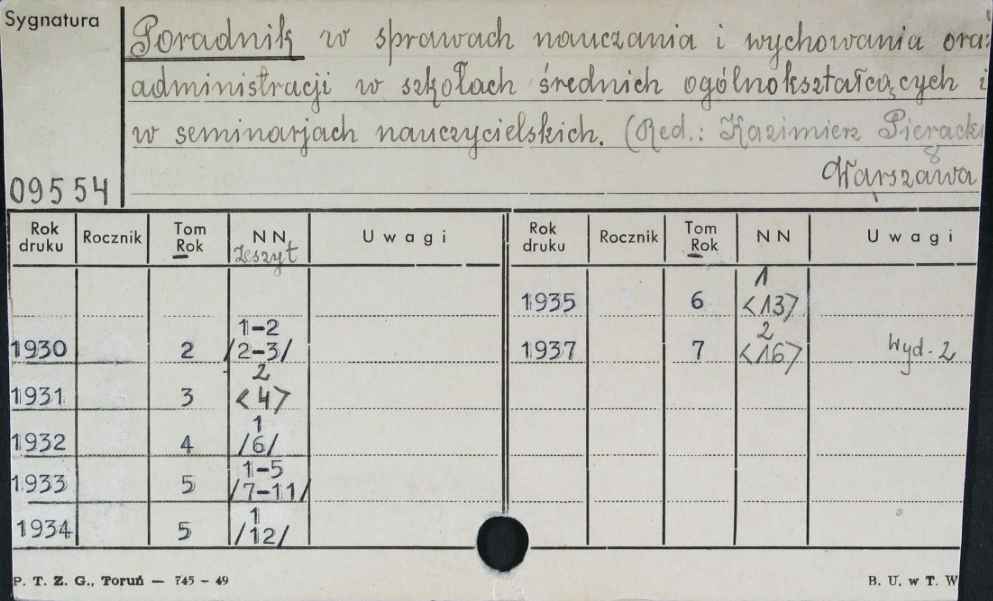 Sygnatura
Poradnik w sprawach nauczania i wychowania oraz
administracji w szkołach średnich ogólnokształcących i
w seminarjach nauczycielskich. (Red.: Kazimierz Pieracki
8
Warszawa
09554
Rok druku Rocznik Tom Rok NN Zeszyt Uwagi Rok druku Rocznik Tom Rok NN Uwagi
1935 6 1 <13>
1930 2 1-2 /2-3/ 1937 7 2 <16> Wyd. 2
1931 3 2 <4>
1932 4 1 /6/
1933 5 1-5 /7-11/
1934 5 1 /12/
P. T. Z. G., Toruń — 745 - 49 B. U. w T. W